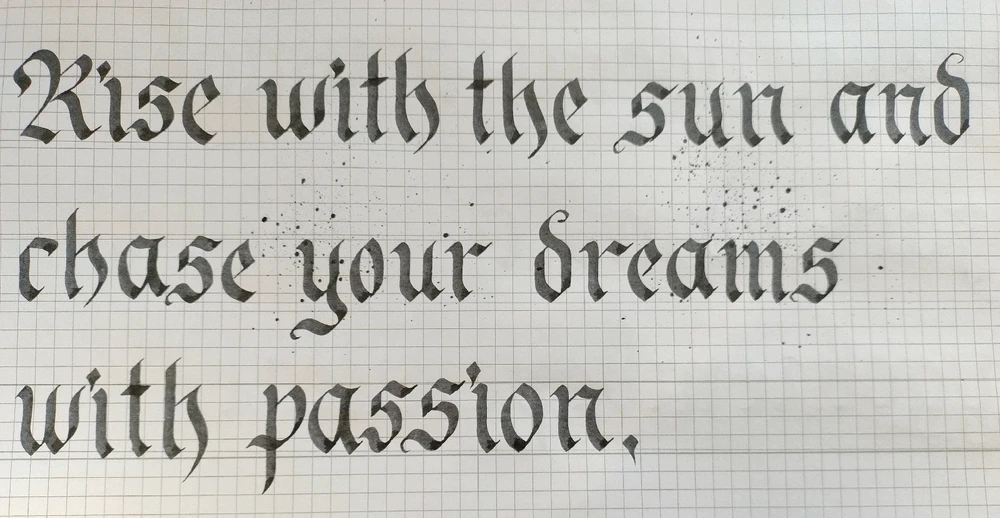 Rise with the sun and
chase your dreams
with passion,